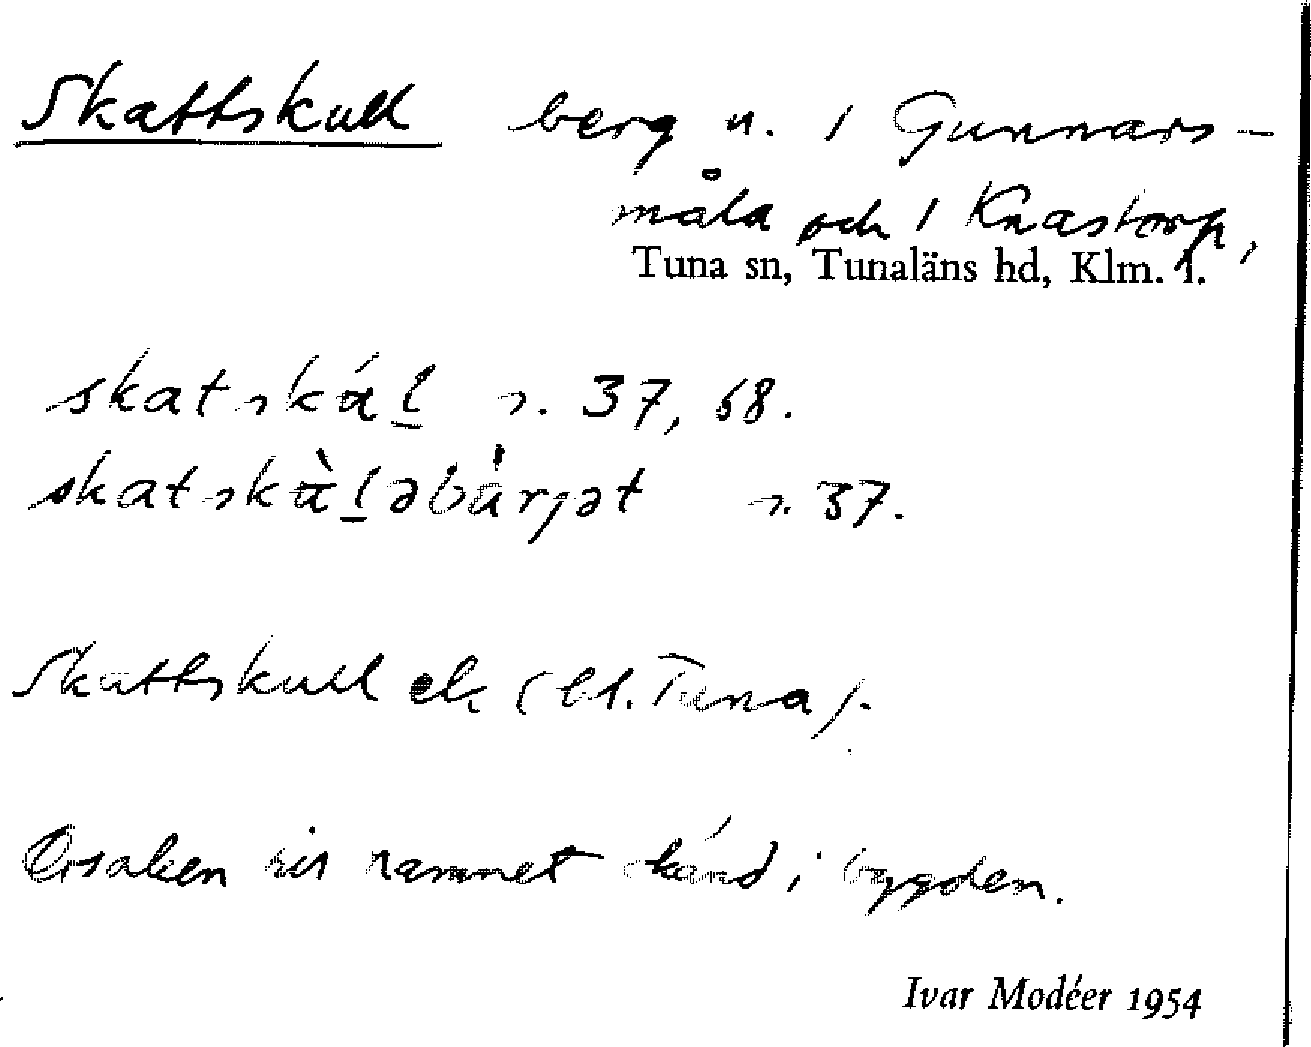 Skattskull berg n. i Gunnars-
måla och i Knastorp,
Tuna sn, Tunaläns hd, Klm. l.
skatskál s. 37, 68.
skatskàləbärjət s. 37.
Skattskull ek (bl. Tuna).
Orsaken till namnet okänd i bygden.
Ivar Modéer 1954